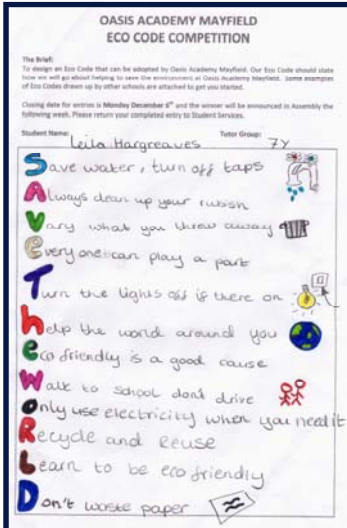 OASIS ACADEMY MAYFIELD
ECO CODE COMPETITION
The Brief:
To design an Eco Code that can be adopted by Oasis Academy Mayfield. Our Eco Code should state
how we will go about helping to save the environment at Oasis Academy Mayfield. Some examples
of Eco Codes drawn up by other schools are attached to get you started.
Closing date for entries is Monday December 6th and the winner will be announced in Assembly the
following week. Please return your completed entry to Student Services.
Student Name: Leila Hargreaves Tutor Group: 7Y
Save water, turn off taps
Always clean up your rubish
Vary what you throw away
Every one can play a part
Turn the lights off if there on
help the world around you
eco friendly is a good cause
Walk to school don't drive
Only use electricity when you need it
Recycle and Reuse
Learn to be eco friendly
Don't waste paper